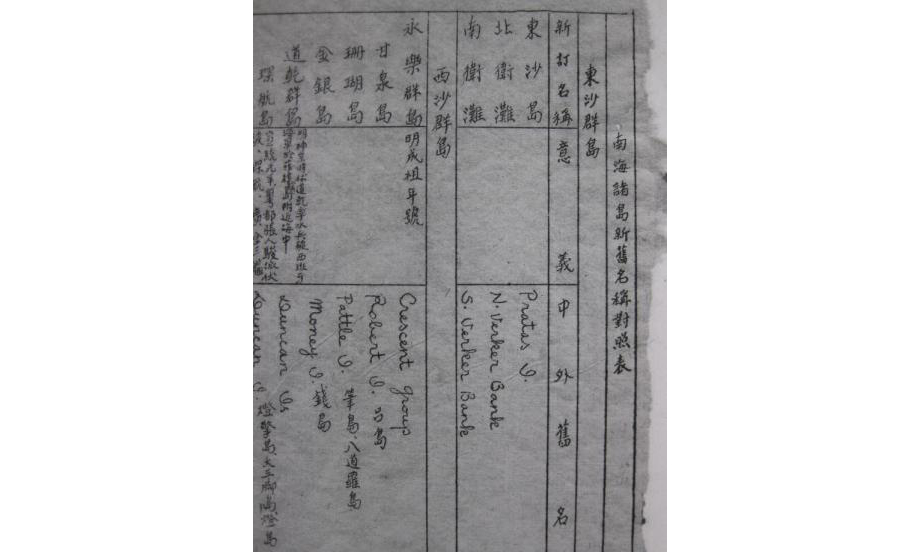 南海諸島新舊名稱對照表
東沙群島
新訂名稱 意義 中外舊名
東沙島 Pratas I.
北衛灘 N. Verker Bank
南衛灘 S. Verker Bank
西沙群島
永樂群島 明成祖年號 Crescent Group
甘泉島 Robert I.
珊瑚島 Pattle I. 筆島.八道羅島
金銀島 Money I. 錢島
道乾群島 道乾率水兵破西班牙 附近海中 Duncan Is
琛航島 宣統元年粵都張人駿派伏
波、琛航、廣金三艦 Duncan I. 燈擎島大三脚島燈島